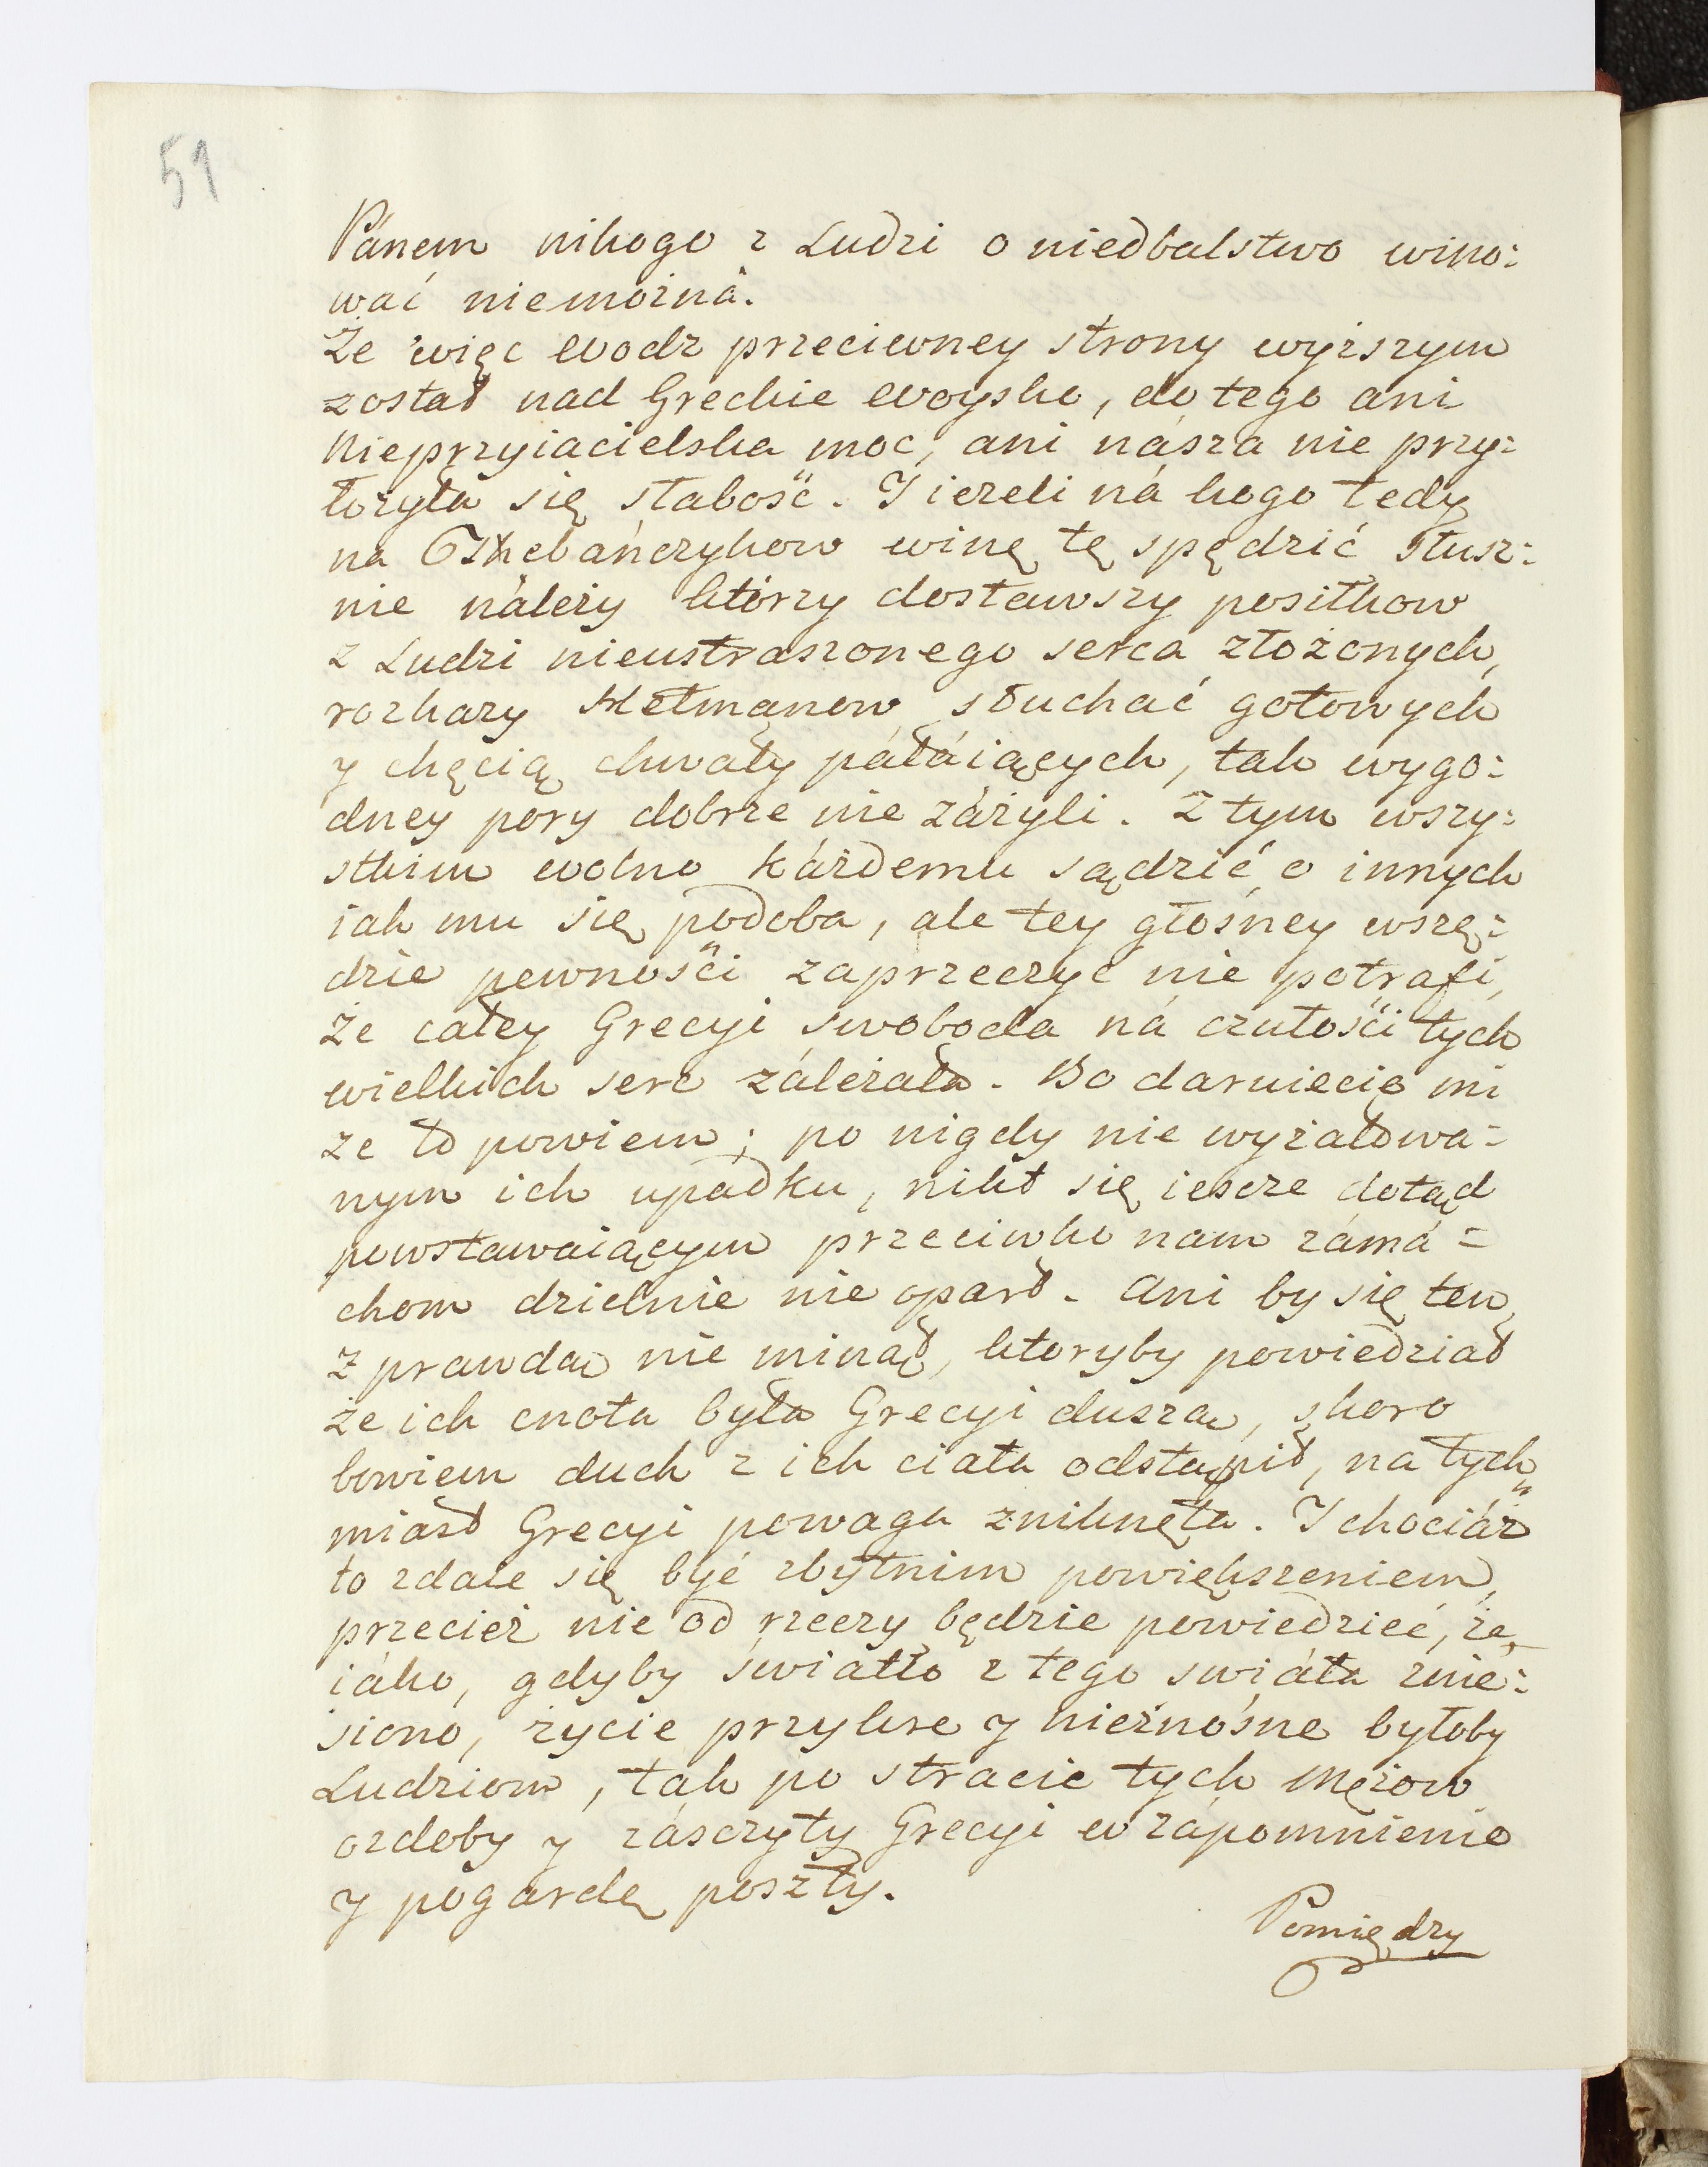 51
Pánem nikogo z Ludzi o niedbalstwo wino:
wać niemożná.
Że więc Wodz przeciwney strony wyższym
został nad Greckie Woysko, do tego ani
Nieprzyiacielska moc, ani násza nie przy:
łożyła się słabość. I ieżeli ná kogo tedy
na Thebańczykow winę tę spędzić słusz:
nie náleży którzy dostawszy posiłkow
z Ludzi nieustraszonego serca złożonych,
rozkazy Hetmanow słuchać gotowych
y chęcią chwały páłáiących, tak wygo:
dney pory dobrze nie záżyli. Z tym wszy:
stkim wolno káżdemu sądzić o innych
iak mu się podoba, ale tey głośney wszę:
dzie pewności zaprzeczyć nie potrafi,
że całey Grecyi swoboda ná czułości tych
wielkich serc záleżała. Bo daruiecie mi
że to powiem; po nigdy nie wyżałowa=
nym ich upadku, nikt się iescze dotąd
powstawaiącym przeciwko nam zámá=
chom dzielnie nie oparł. Ani by się ten
z prawdą nie minął, ktoryby powiedział
że ich cnota była Grecyi duszą, skoro
bowiem duch z ich ciała odstąpił, na tych
miast Grecyi powaga zniknęła. I chociáż
to zdaie się być zbytnim powiększeniem,
przecież nie od rzeczy będzie powiedzieć, że,
iáko, gdyby światło z tego swiáta znie:
siono, życie przykre y nieznośne byłoby
Ludziom, tak po stracie tych Mężow
ozdoby y zásczyty Grecyi w zápomnienie
y pogardę poszły.
Pomiędzy